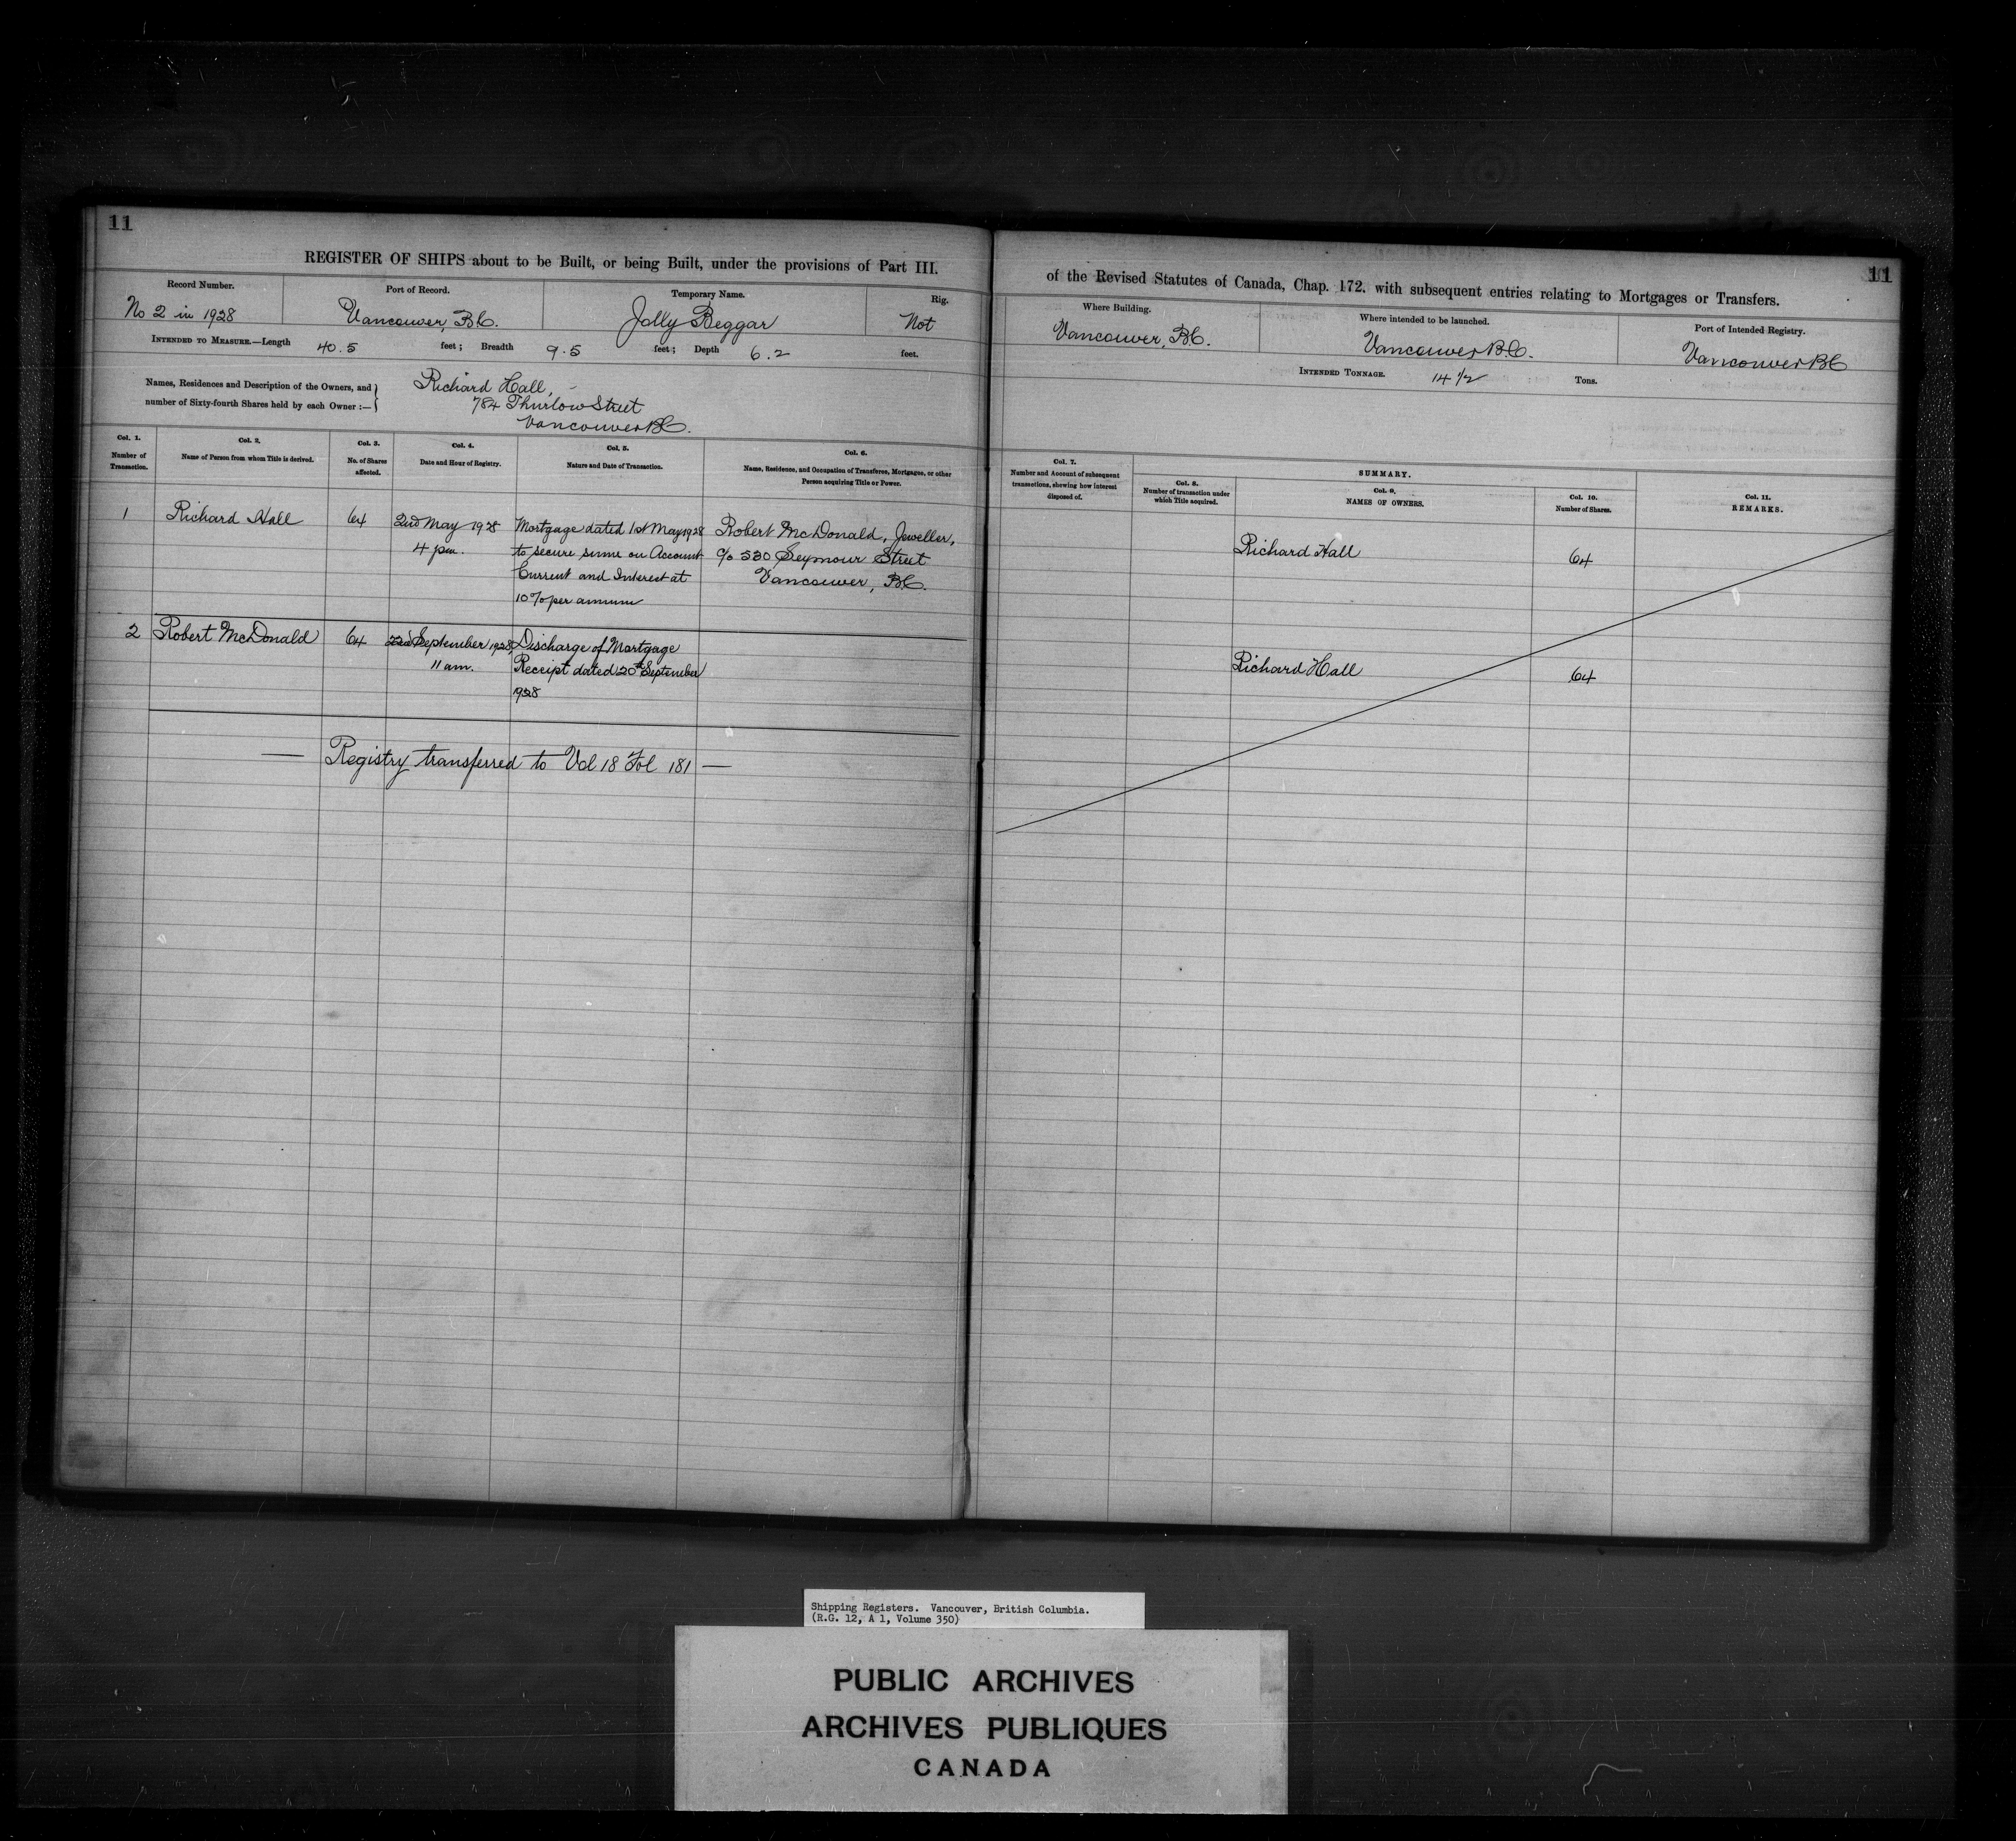 11
REGISTER OF SHIPS about to be Built, or being Built, under the provisions of Part III.
Record Number.
Port of Record.
Temporary Name.
Rig.
No 2 in 1928
Vancouver, B.C.
Jolly Beggar
Not
INTENDED TO MEASURE.—Length 40.5 feet; Breadth 9.5 feet; Depth 6.2 feet.
Names, Residences and Description of the Owners, and
number of Sixty-fourth Shares held by each Owner :—
Richard Hall,
784 Thurlow Street
Vancouver B.C.
Col. 1.
Number of
Transaction.
Col. 2.
Name of Person from whom Title is derived.
Col. 3.
No. of Shares
affected.
Col. 4.
Date and Hour of Registry.
Col. 5.
Nature and Date of Transaction.
Col. 6.
Name, Residence, and Occupation of Transferee, Mortgagee, or other
Person acquiring Title or Power.
1
Richard Hall
64
2nd May 1928
4 pm.
Mortgage dated 1st May 1928
to secure sums on Account
Current and Interest at
10% per annum
Robert McDonald, Jeweller,
c/o 530 Seymour Street
Vancouver, B.C.
2
Robert McDonald
64
22nd September 1928,
11 am.
Discharge of Mortgage
Receipt dated 20th September
1928
— Registry transferred to Vol 18 Fol 181 —
11
of the Revised Statutes of Canada, Chap. 172. with subsequent entries relating to Mortgages or Transfers.
Where Building.
Where intended to be launched.
Port of Intended Registry.
Vancouver, B.C.
Vancouver B.C.
Vancouver BC
INTENDED TONNAGE. 14 1/2 Tons.
Col. 7.
Number and Account of subsequent
transactions, shewing how interest
disposed of.
SUMMARY.
Col. 8.
Number of transaction under
which Title acquired.
Col. 9.
NAMES OF OWNERS.
Col. 10.
Number of Shares.
Col. 11.
REMARKS.
Richard Hall
64
Richard Hall
64
Shipping Registers. Vancouver, British Columbia.
(R.G. 12, A 1, Volume 350)
PUBLIC ARCHIVES
ARCHIVES PUBLIQUES
CANADA